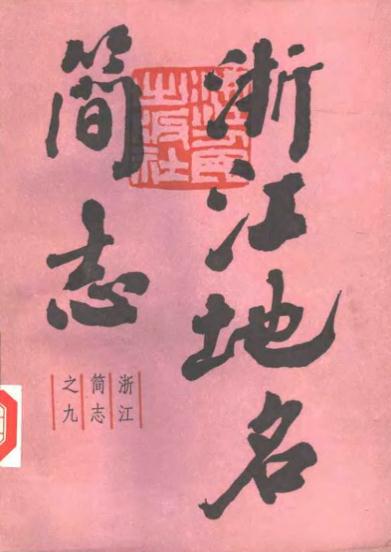 浙江地名
简志
浙江
简志
之九
浙江人民
出版社